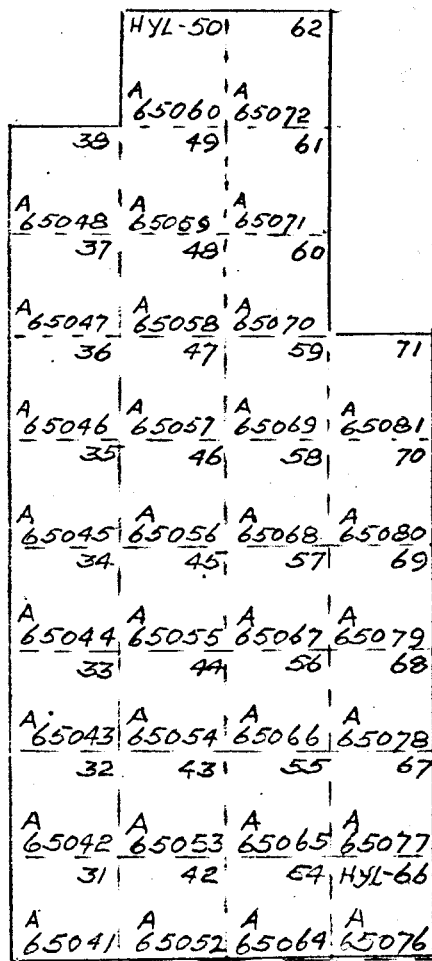 HYL-50 62
A A
65060 65072
38 49 61
A A A
65048 65059 65071
37 48 60
A A A
65047 65058 65070
36 47 59 71
A A A A
65046 65057 65069 65081
35 46 58 70
A A A A
65045 65056 65068 65080
34 45 57 69
A A A A
65044 65055 65067 65079
33 44 56 68
A A A A
65043 65054 65066 65078
32 43 55 67
A A A A
65042 65053 65065 65077
31 42 54 HYL-66
A A A A
65041 65052 65064 65076